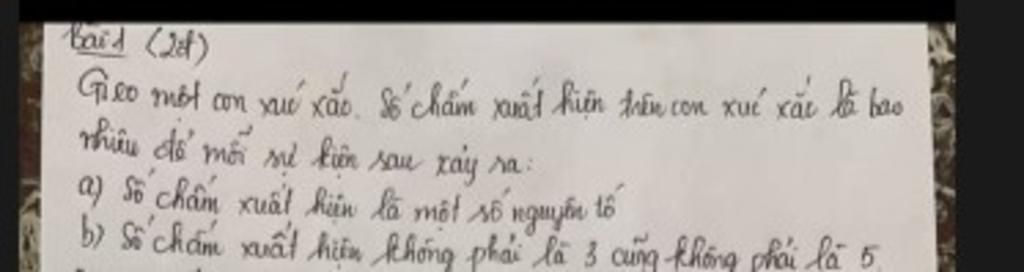 Bài 1 (2đ)
Gieo một con xúc xắc. Số chấm xuất hiện trên con xúc xắc là bao
nhiêu để mỗi sự kiện sau xảy ra:
a) Số chấm xuất hiện là một số nguyên tố
b) Số chấm xuất hiện không phải là 3 cũng không phải là 5